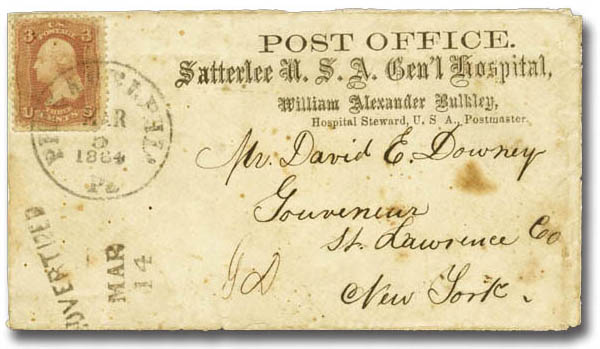 3 U.S. 3
POSTAGE
THREE
U CENTS S
POST OFFICE.
Satterlee U. S. A. Gen'l Hospital,
William Alexander Bulkley,
Hospital Steward, U. S. A., Postmaster.
PHILADELPHIA
MAR
5
1864
Pa
Mr. David E. Downey
Gouveneur
St. Lawrence Co
New York.
ADVERTISED
MAR
14